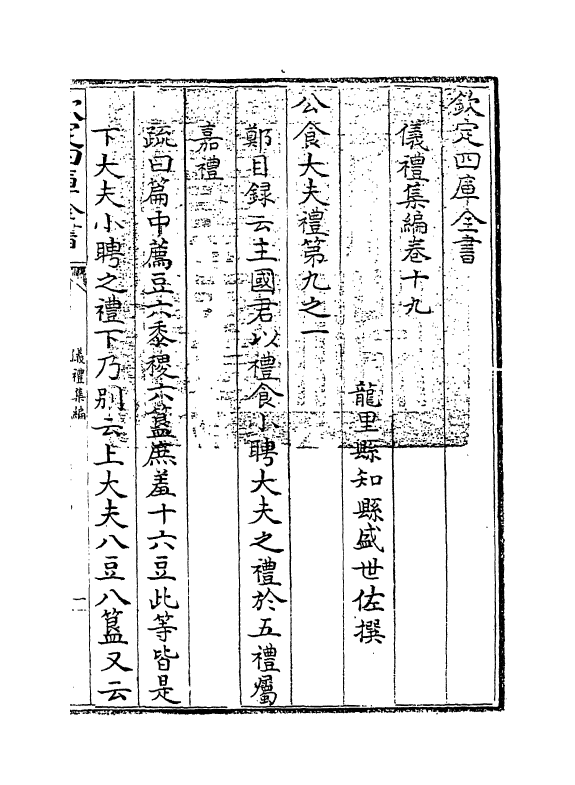 欽定四庫全書
儀禮集編卷十九
龍里縣知縣盛世佐撰
公食大夫禮第九之一
鄭目録云主國君以禮食小聘大夫之禮於五禮屬
嘉禮
疏曰篇中薦豆六黍稷六簋庶羞十六豆此等皆是
下大夫小聘之禮下乃別云上大夫八豆八簋又云
欽定四庫全書
儀禮集編
一